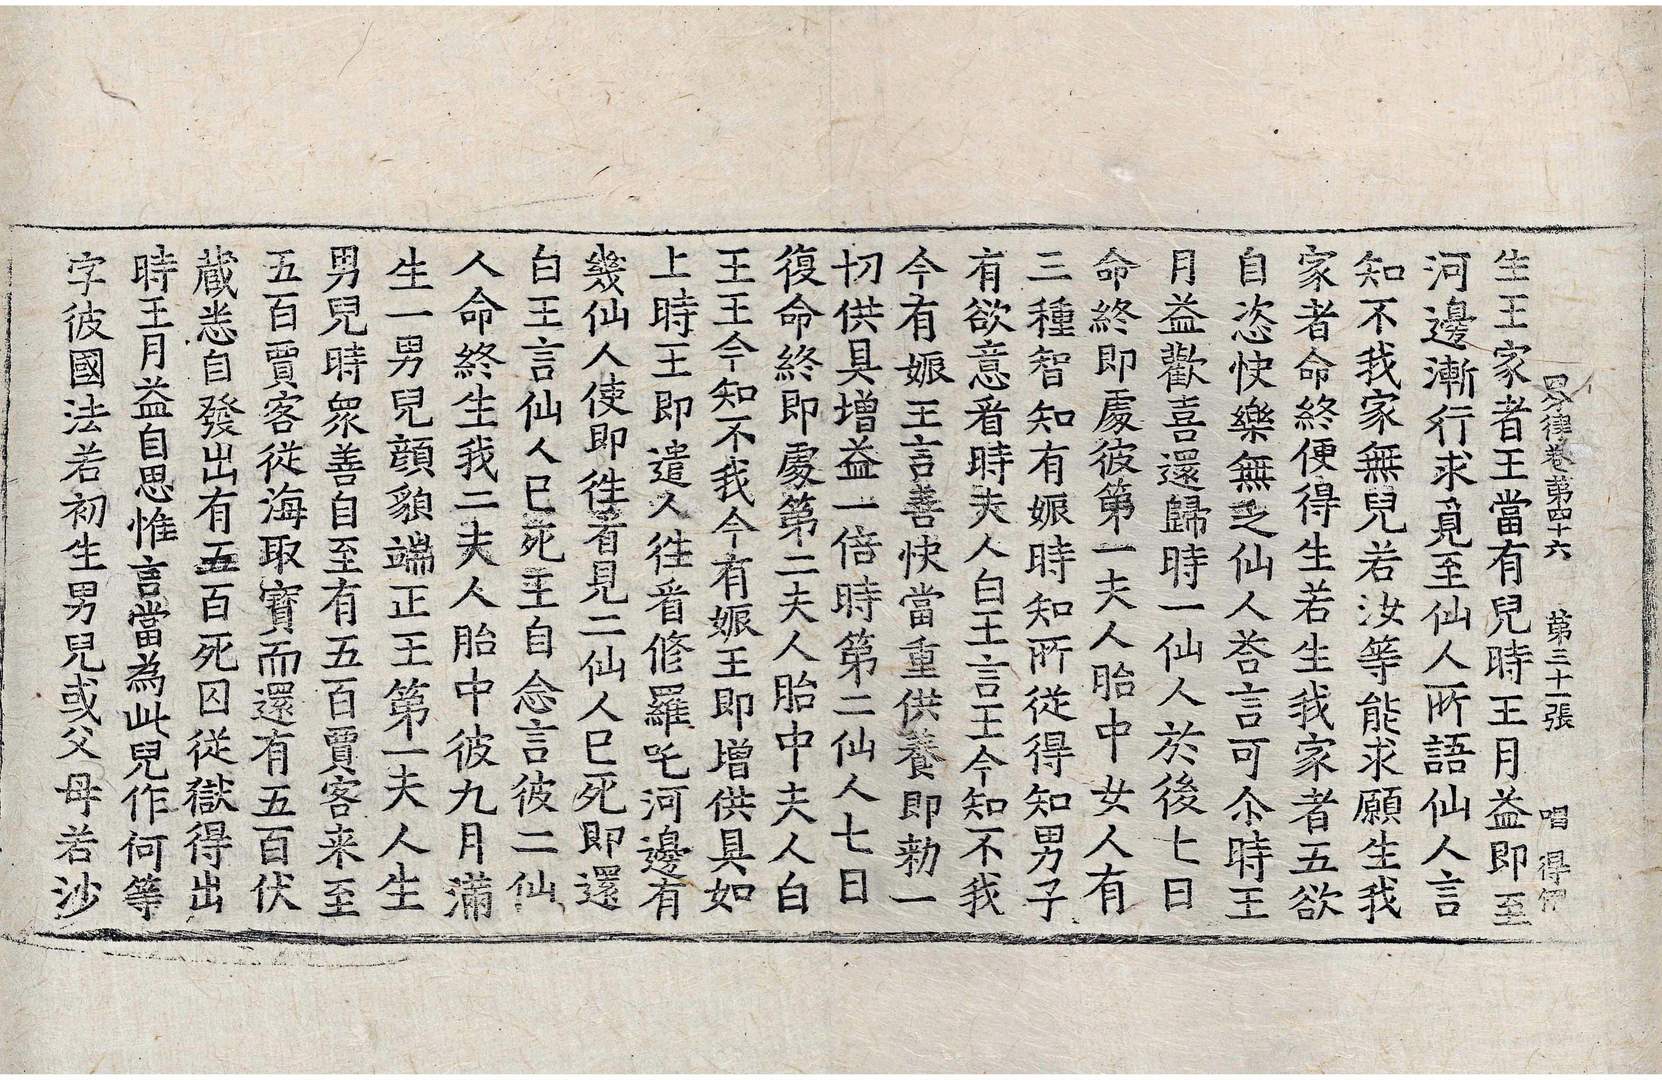 四分律卷第四十六 第三十一張 唱 得
生王家者王當有兒時王月益即至
河邊漸行求覓至仙人所語仙人言
知不我家無兒若汝等能求願生我
家者命終便得生若生我家者五欲
自恣快樂無乏仙人荅言可尒時王
月益歡喜還歸時一仙人於後七日
命終即處彼第一夫人胎中女人有
三種智知有娠時知所從得知男子
有欲意看時夫人白王言王今知不我
今有娠王言善快當重供養即勑一
切供具增益一倍時第二仙人七日
復命終即處第二夫人胎中夫人白
王王今知不我今有娠王即增供具如
上時王即遣人徃看修羅吒河邊有
幾仙人使即徃看見二仙人已死即還
白王言仙人已死王自念言彼二仙
人命終生我二夫人胎中彼九月滿
生一男兒顔貌端正王第一夫人生
男兒時衆善自至有五百賈客来至
五百賈客從海取寶而還有五百伏
蔵悉自發出有五百死囚從獄得出
時王月益自思惟言當為此兒作何等
字彼國法若初生男兒或父母若沙